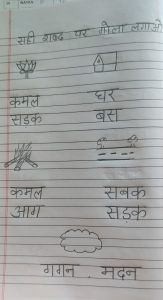 सही शब्द पर गोला लगाओ
कमल घर
सड़क बस
कमल सबक
आग सड़क
गगन . मदन